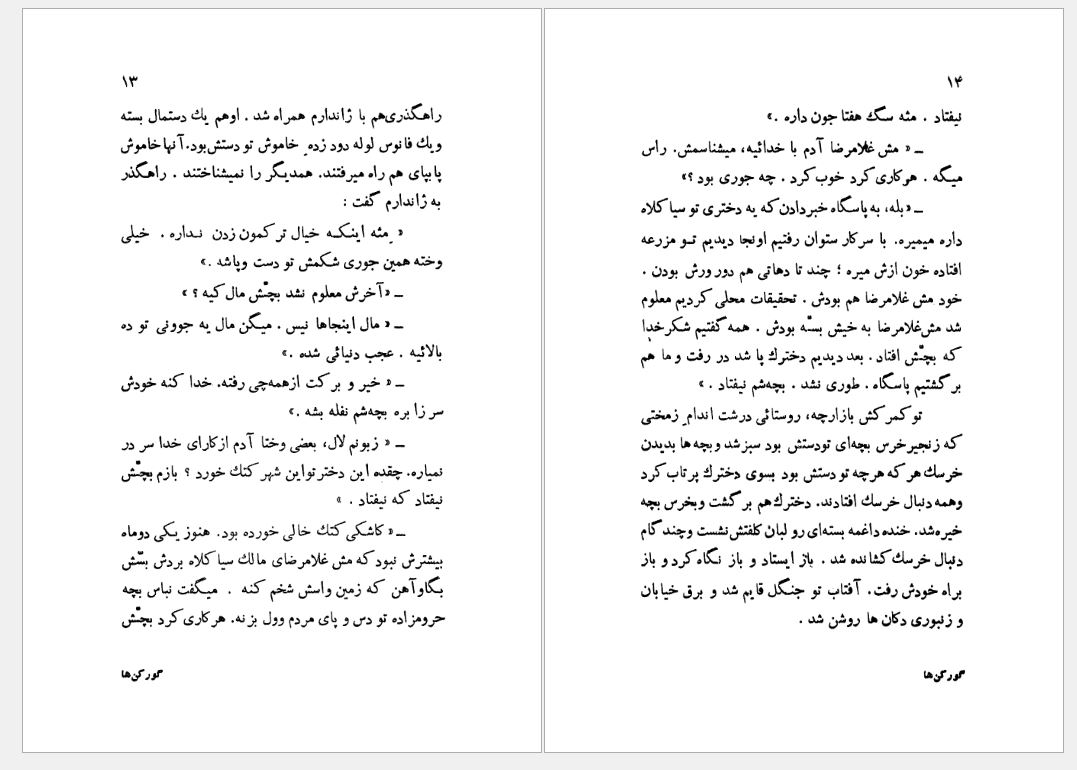 ۱۳
راهگذری‌هم با ژاندارم همراه شد . اوهم یك دستمال بسته
ویك فانوس لوله دود زده‌ِ خاموش تو دستش‌بود. آنها خاموش
پابپای هم راه میرفتند. همدیگر را نمیشناختند . راهگذر
به ژاندارم گفت :
« ِمثه اینکه خیال ترکمون زدن نداره . خیلی
وخته همین جوری شکمش تو دست وپاشه .»
ــ «آخرش معلوم نشد بچّش مال کیه ؟ »
ــ « مال اینجاها نیس . میگن مال یه جوونی تو ده
بالائیه . عجب دنیائی شده .»
ــ « خیر و برکت ازهمه‌چی رفته. خدا کنه خودش
سر زا بره بچه‌شم نفله بشه .»
ــ « زبونم لال، بعضی وختا آدم ازکارای خدا سر در
نمیاره. چقده این دختر تواین شهر کتك خورد ؟ بازم بچّش
نیفتاد که نیفتاد . »
ــ « کاشکی کتك خالی خورده بود. هنوز یکی دوماه
بیشترش نبود که مش غلامرضای مالك سیا کلاه بردش بسّش
بگاوآهن که زمین واسش شخم کنه . میگفت نباس بچه
حرومزاده تو دس و پای مردم وول بزنه. هرکاری کرد بچّش
گورکن‌ها
۱۴
نیفتاد . مثه سگ هفتا جون داره .»
ــ « مش غلامرضا آدم با خدائیه، میشناسمش. راس
میگه . هرکاری کرد خوب کرد . چه جوری بود ؟»
ــ «بله، به پاسگاه خبردادن که یه دختری تو سیا کلاه
داره میمیره. با سرکار ستوان رفتیم اونجا دیدیم تو مزرعه
افتاده خون ازش میره ؛ چند تا دهاتی هم دور ورش بودن .
خود مش غلامرضا هم بودش . تحقیقات محلی کردیم معلوم
شد مش‌غلامرضا به خیش بسّه بودش . همه گفتیم شکرخدا
که بچّش افتاد . بعد دیدیم دخترك پا شد در رفت و ما هم
برگشتیم پاسگاه . طوری نشد . بچه‌شم نیفتاد . »
تو کمرکش بازارچه، روستائی درشت اندامِ زمختی
که زنجیرخرس بچه‌ای تودستش بود سبزشد وبچه‌ها بدیدن
خرسك هر که هرچه تو دستش بود بسوی دخترك پرتاب کرد
وهمه دنبال خرسك افتادند. دخترك‌هم برگشت وبخرس بچه
خیره‌شد. خنده داغمه بسته‌ای رو لبان کلفتش نشست وچند گام
دنبال خرسك کشانده شد . باز ایستاد و باز نگاه کرد و باز
براه خودش رفت. آفتاب تو جنگل قایم شد و برق خیابان
و زنبوری دکان ها روشن شد .
گورکن‌ها